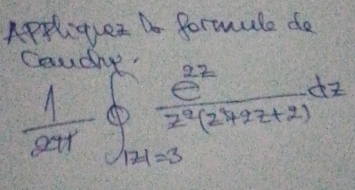 Appliquez la formule de
Cauchy.
1/2π ∮_{|z|=3} e^{2z}/(z²(z²+2z+2)) dz